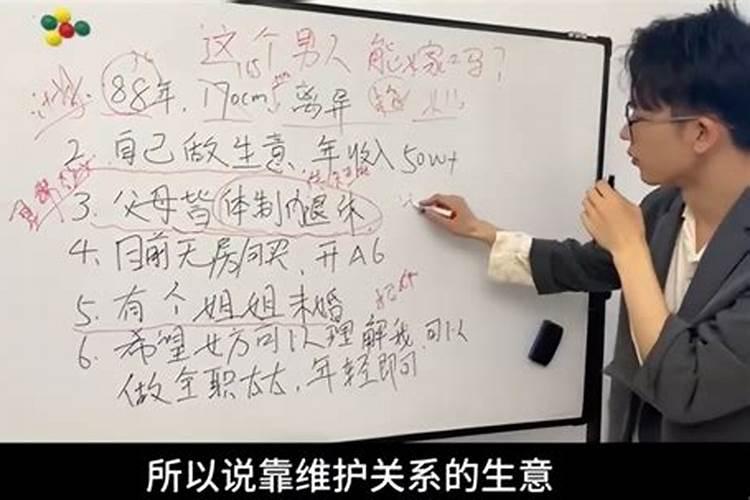 这个男人 能嫁吗?
88年, 170cm, 离异
2. 自己做生意、年收入50w+
3. 父母皆体制内退休
4. 目前无房可买、开A6
5. 有个姐姐未婚
6. 希望女方可以理解我,可以
做全职太太,年轻即可
所以说靠维护关系的生意